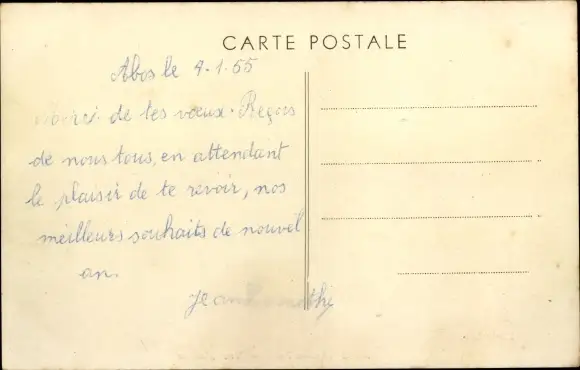 CARTE POSTALE
Abos le 4-1-55
Merci de tes vœux. Reçois
de nous tous, en attendant
le plaisir de te revoir, nos
meilleurs souhaits de nouvel
an.